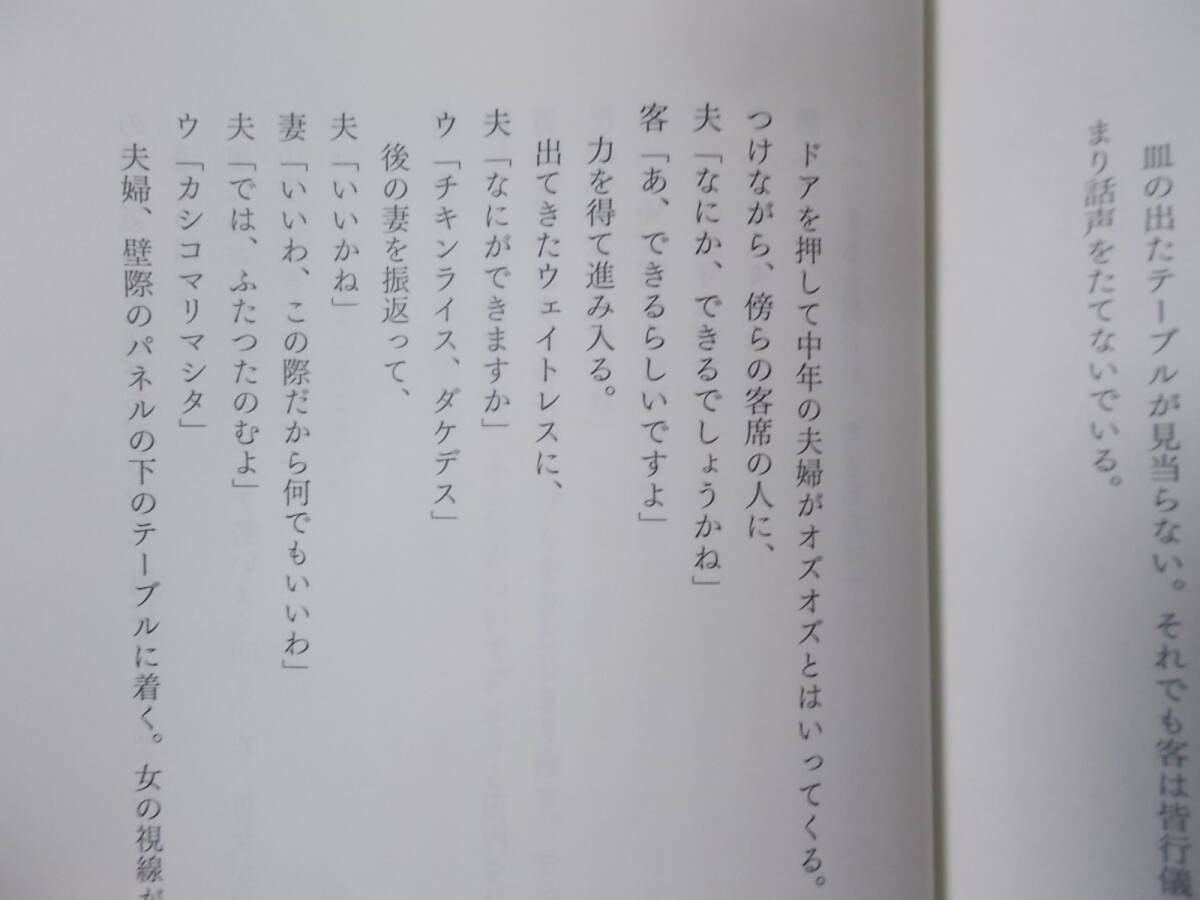 皿の出たテーブルが見当らない。それでも客は皆行儀
まり話声をたてないでいる。
ドアを押して中年の夫婦がオズオズとはいってくる。
つけながら、傍らの客席の人に、
夫「なにか、できるでしょうかね」
客「あ、できるらしいですよ」
力を得て進み入る。
出てきたウェイトレスに、
夫「なにができますか」
ウ「チキンライス、ダケデス」
後の妻を振返って、
夫「いいかね」
妻「いいわ、この際だから何でもいいわ」
夫「では、ふたつたのむよ」
ウ「カシコマリマシタ」
夫婦、壁際のパネルの下のテーブルに着く。女の視線が